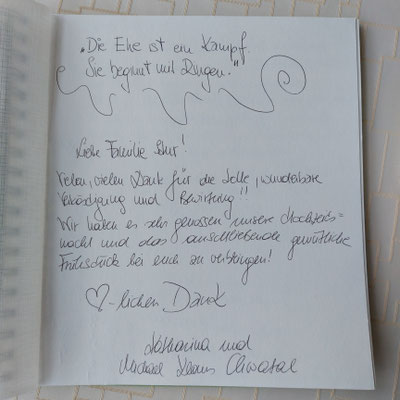 „Die Ehe ist ein Kampf.
Sie beginnt mit Ringen."
Liebe Familie
Vielen, vielen Dank für die tolle, wunderbare
Verköstigung und Bewirtung!!
Wir haben es sehr genossen unsere Hochzeits=
nacht und das anschließende gemütliche
Frühstück bei euch zu verbringen!
♡-lichen Dank
Katharina und
Michael